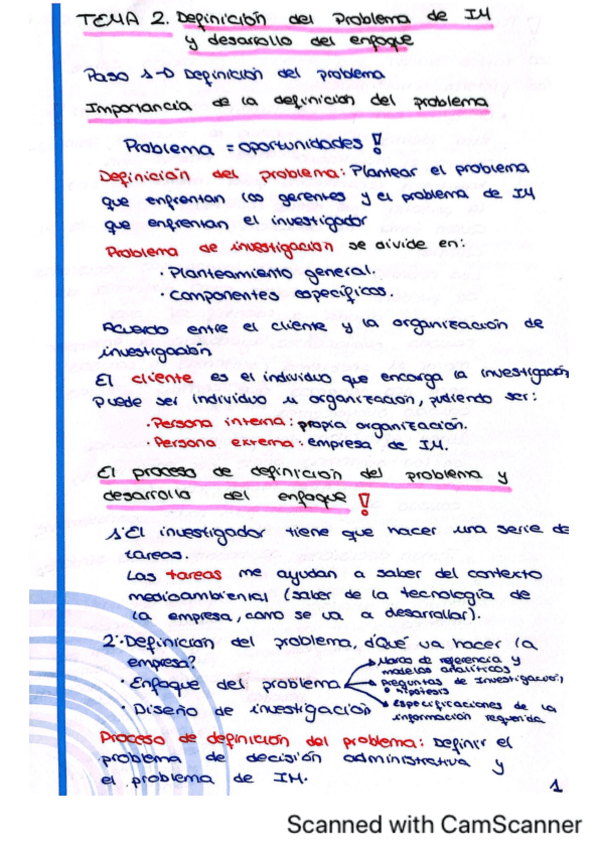 TEMA 2. Definición del Problema de IM
y desarrollo del enfoque
Paso 1 → Definición del problema
Importancia de la definición del problema
Problema = oportunidades !
Definición del problema: Plantear el problema
que enfrentan los gerentes y el problema de IM
que enfrentan el investigador
Problema de investigación se divide en:
· Planteamiento general.
· Componentes específicos.
Acuerdo entre el cliente y la organización de
investigación
El cliente es el individuo que encarga la investigación
Puede ser individuo u organización, pudiendo ser:
· Persona interna: propia organización.
· Persona externa: empresa de IM.
El proceso de definición del problema y
desarrollo del enfoque !
1. El investigador tiene que hacer una serie de
tareas.
Las tareas me ayudan a saber del contexto
medioambiental (saber de la tecnología de
la empresa, como se va a desarrollar).
2. Definición del problema, ¿Qué va hacer la
empresa?
· Enfoque del problema
Marco de referencia y
modelos analíticos
Preguntas de investigación,
o hipótesis
Especificaciones de la
información requerida
· Diseño de investigación
Proceso de definición del problema: Definir el
problema de decisión administrativa y
el problema de IM.
1
Scanned with CamScanner